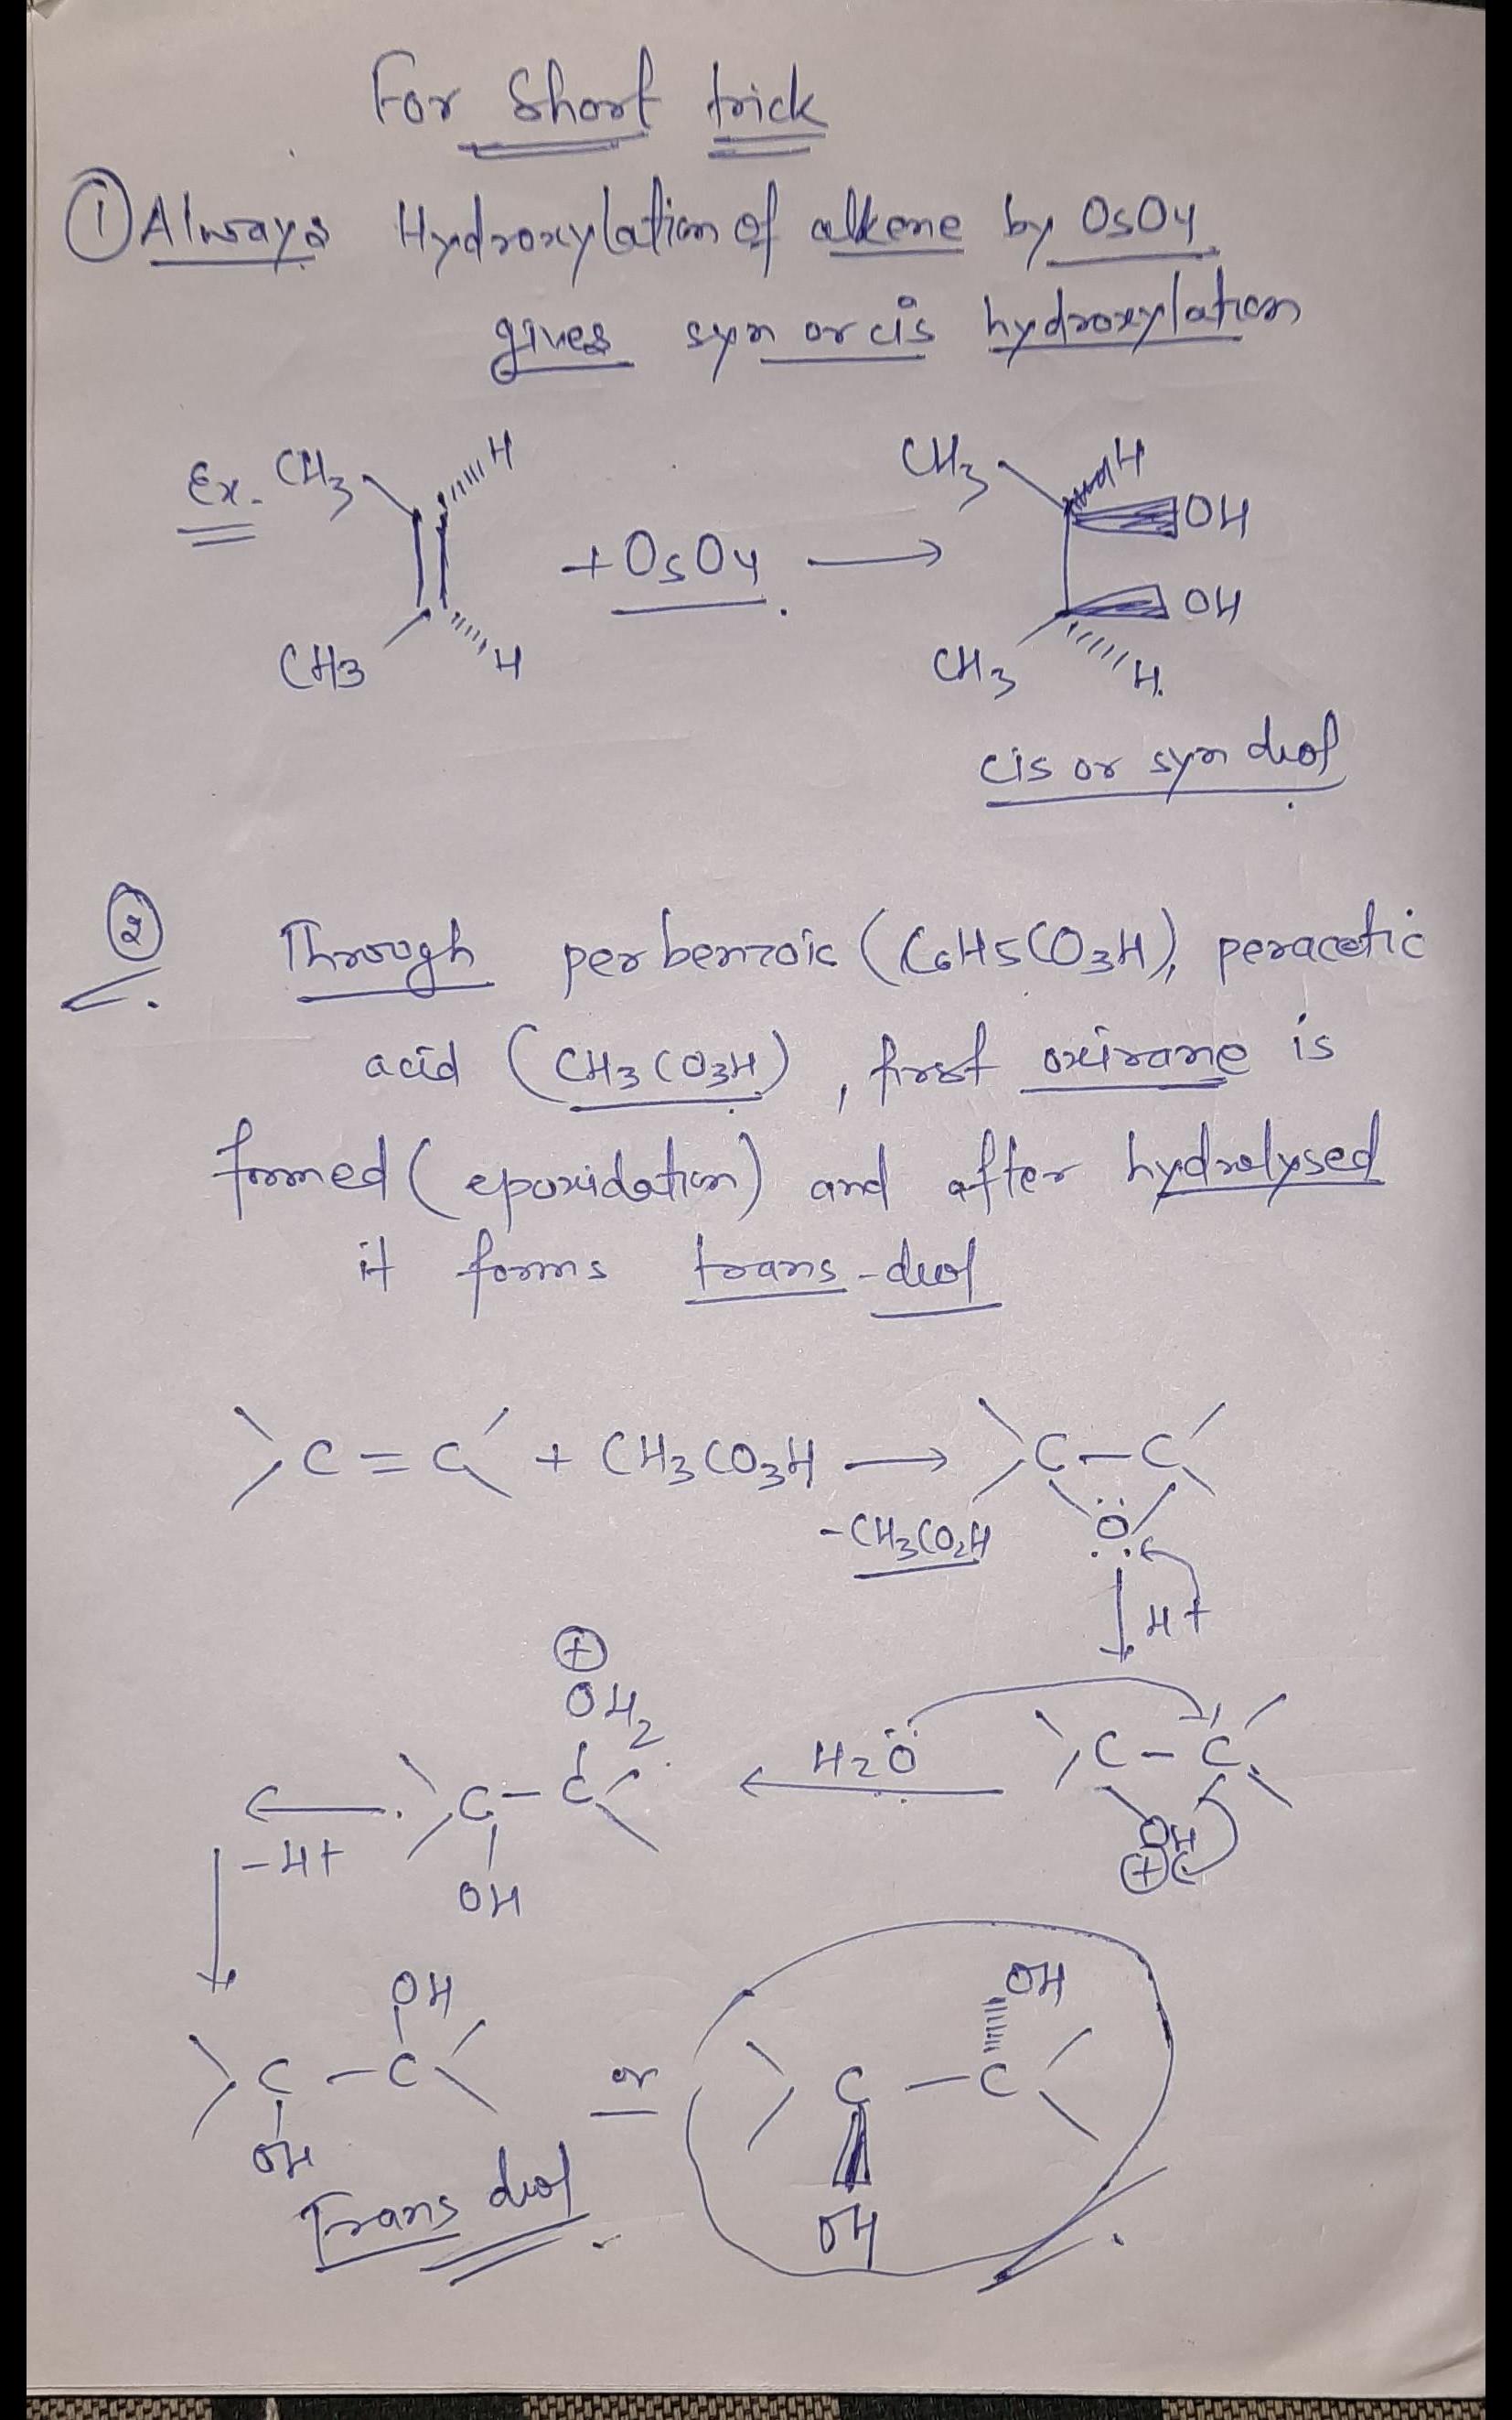 For Short trick
① Always Hydroxylation of alkene by OsO4
gives syn or cis hydroxylation
Ex- CH3 H CH3 H
OH
+ OsO4 →
OH
CH3 H CH3 H.
cis or syn diol
② Through perbenzoic (C6H5CO3H), peracetic
acid (CH3CO3H), first oxirane is
formed (epoxidation) and after hydrolysed
it forms trans-diol
C=C + CH3CO3H → C-C
-CH3CO2H O
H+
⊕
OH2
H2O C-C
C-C OH
-H+ ⊕
OH
OH OH
C-C or C-C
OH
Trans diol OH